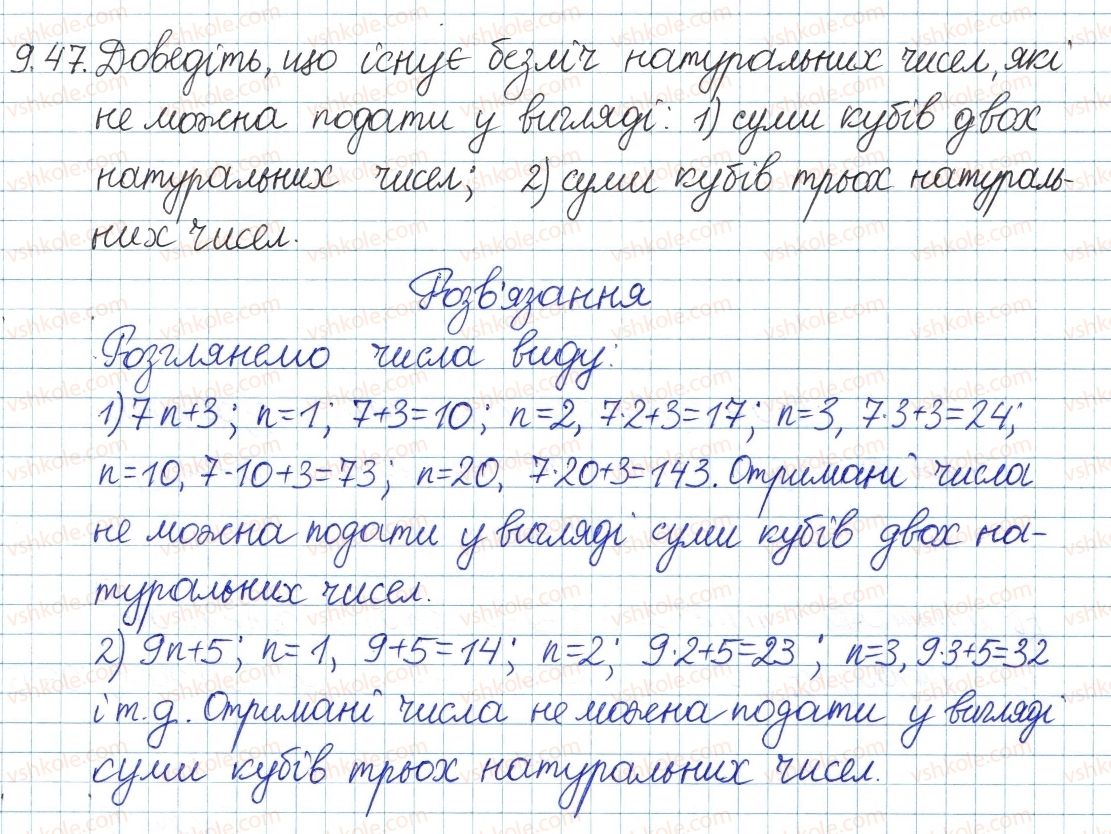 9.47. Доведіть, що існує безліч натуральних чисел, які
не можна подати у вигляді: 1) суми кубів двох
натуральних чисел; 2) суми кубів трьох натураль-
них чисел.
Розв'язання
Розглянемо числа виду:
1) 7n+3; n=1; 7+3=10; n=2, 7·2+3=17; n=3, 7·3+3=24;
n=10, 7·10+3=73; n=20, 7·20+3=143. Отримані числа
не можна подати у вигляді суми кубів двох на-
туральних чисел.
2) 9n+5; n=1, 9+5=14; n=2; 9·2+5=23; n=3, 9·3+5=32
і т.д. Отримані числа не можна подати у вигляді
суми кубів трьох натуральних чисел.